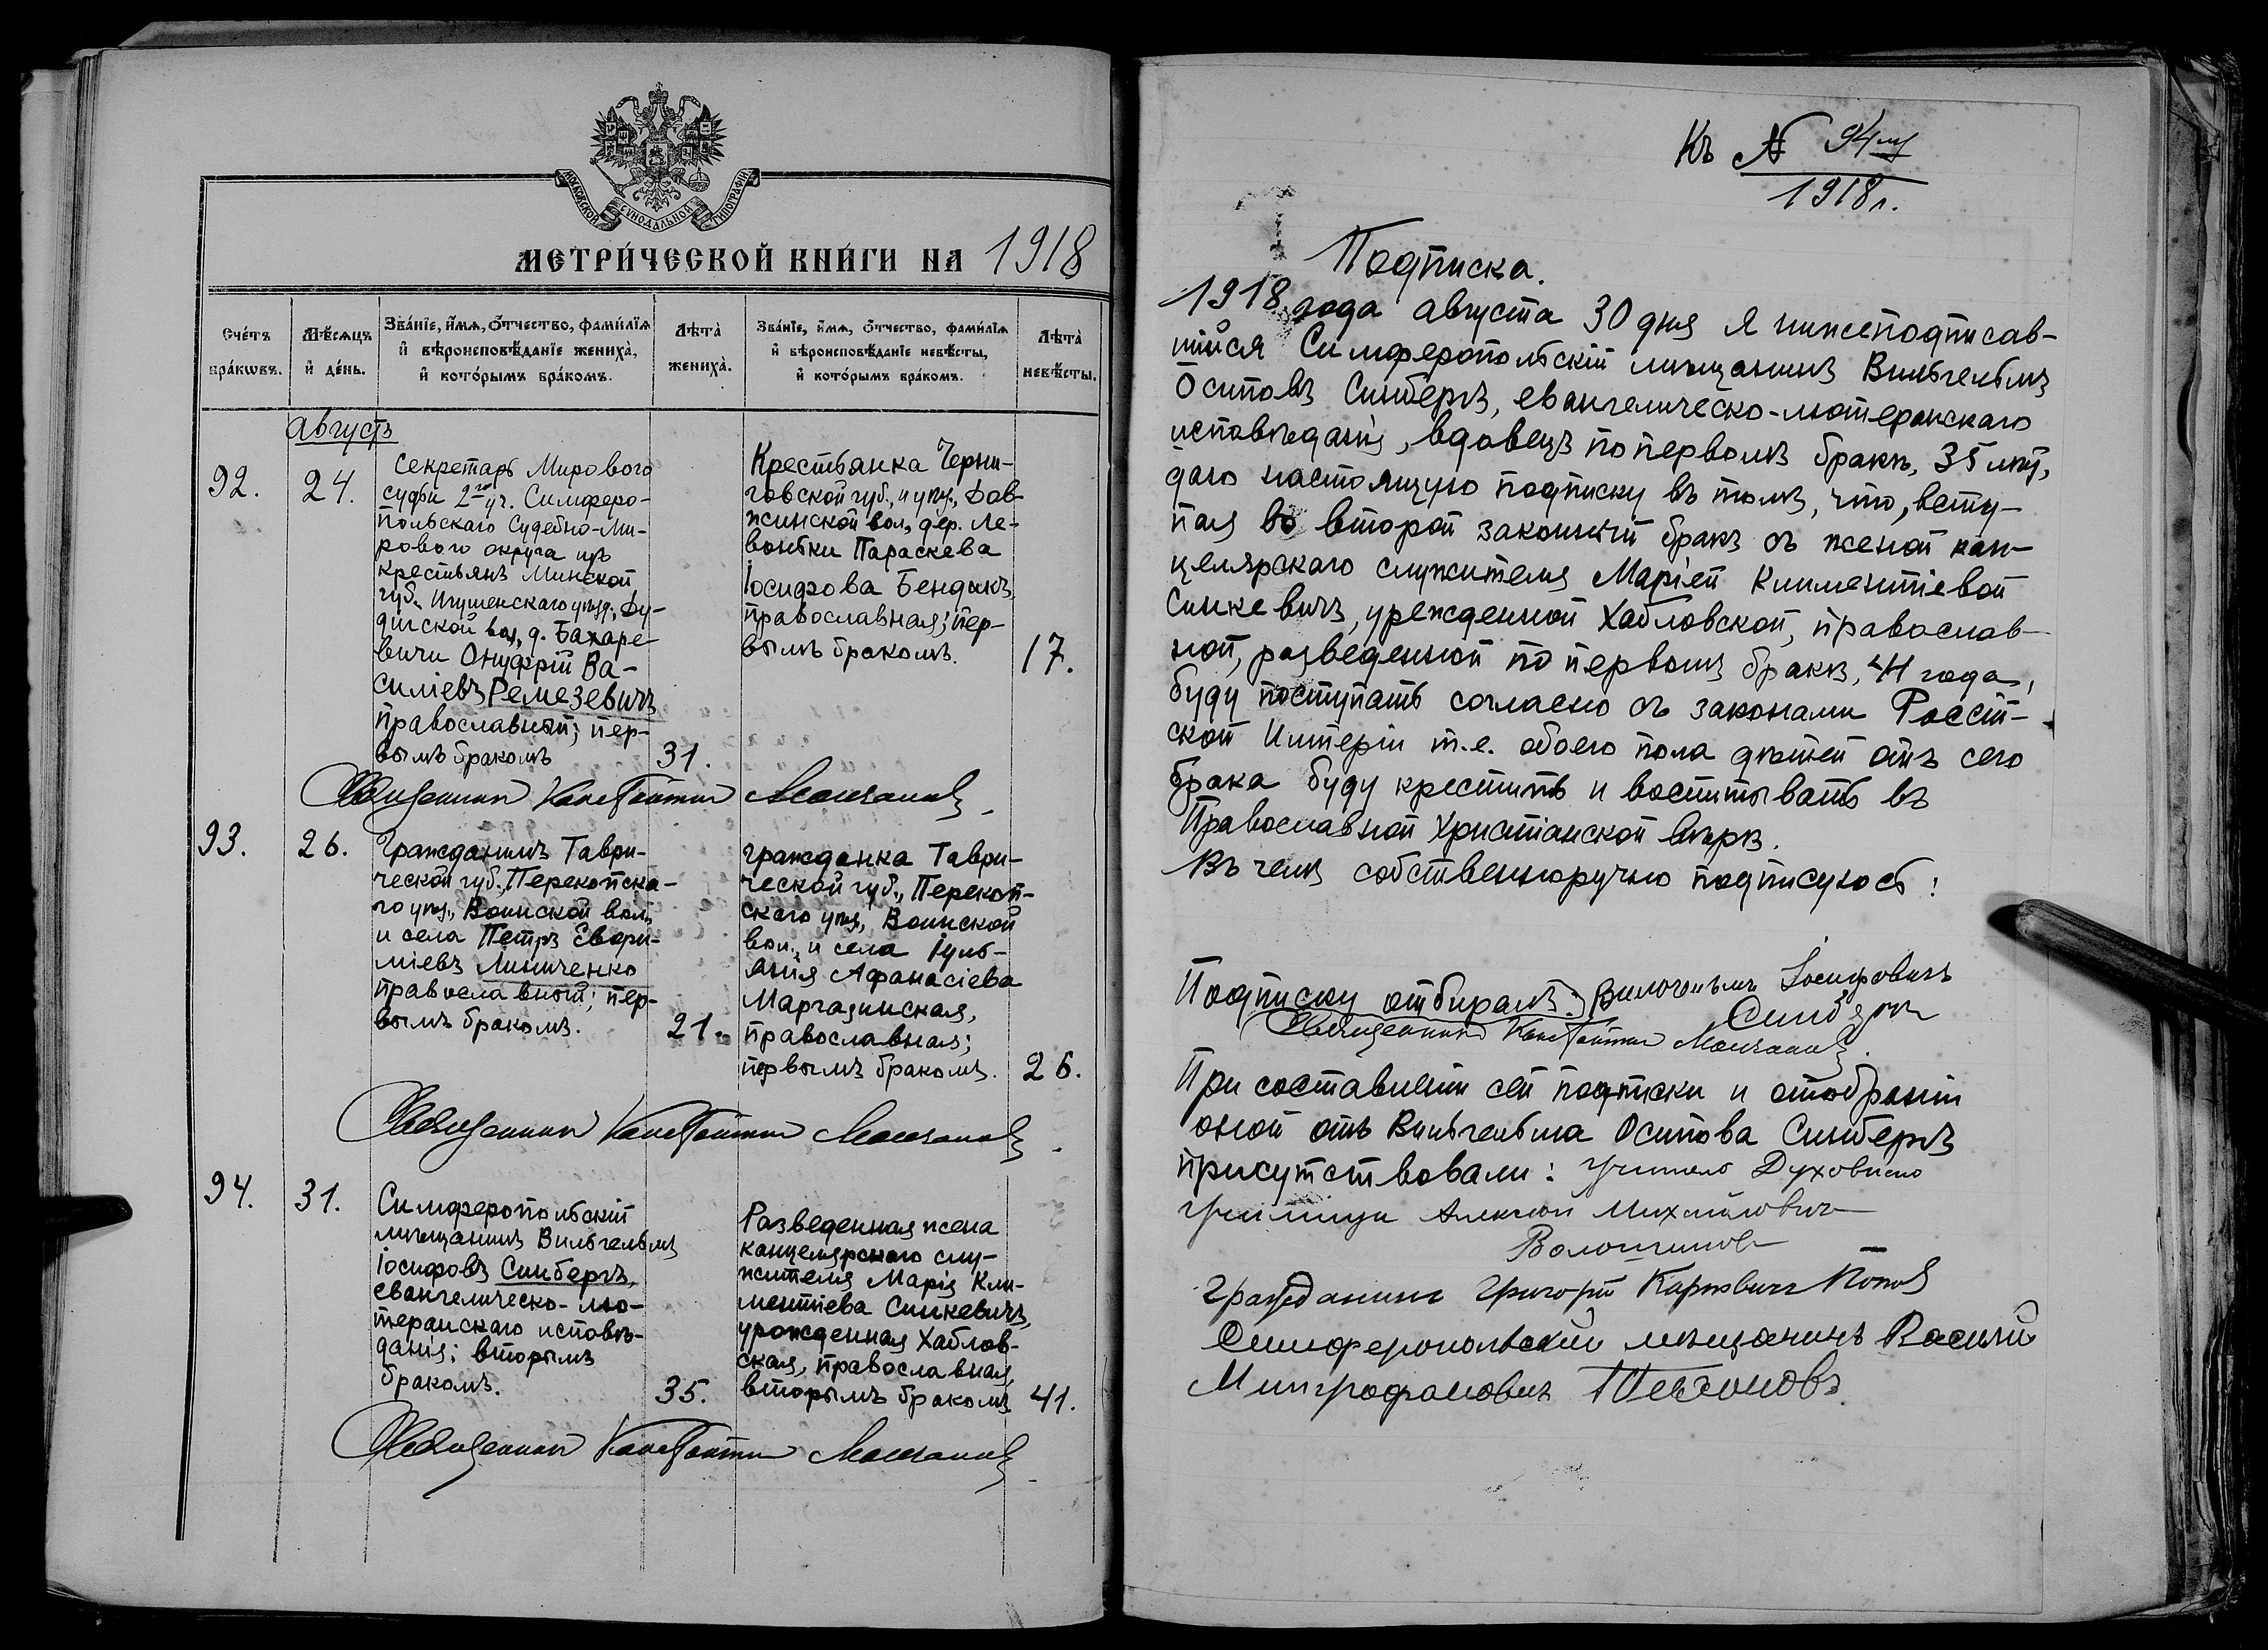 МОСКОВСКОЙ СѴНОДАЛЬНОЙ ТИПОГРАФІИ
МЕТРИ́ЧЕСКОЙ КНИ́ГИ НА 1918
Сче́тъ бра́кωвъ.
Мѣ́сяцъ и҆ де́нь.
Зва́нїе, и҆́мѧ, ѻ҆́тчество, фами́лїѧ
и҆ вѣроисповѣ́данїе жениха̀,
и҆ кото́рымъ бра́комъ.
Лѣта̀ жениха̀.
Зва́нїе, и҆́мѧ, ѻ҆́тчество, фами́лїѧ
и҆ вѣроисповѣ́данїе невѣ́сты,
и҆ кото́рымъ бра́комъ.
Лѣта̀ невѣ́сты.
Августъ
92.
24.
Секретарь Мирового
судьи 2го уч. Симферо-
польскаго Судебно-Ми-
рового округа изъ
крестьянъ Минской
губ., Игуменскаго уѣзд., Ду-
дичской вол., д. Бахаре-
вичи Онуфрій Ва-
силіевъ Ремезевичъ
православный; пер-
вымъ бракомъ
31.
Крестьянка Черни-
говской губ., и уѣзд., Дов-
жинской вол., дер. Ле-
воньки Параскева
Іосифова Бендикъ,
православная; пер-
вымъ бракомъ.
17.
Священникъ Константинъ Молчановъ
93.
26.
Гражданинъ Таври-
ческой губ., Перекопска-
го уѣз., Воинской вол.,
и села Петръ Евфи-
міевъ Линиченко
православный; пер-
вымъ бракомъ.
21.
Гражданка Таври-
ческой губ., Перекоп-
скаго уѣз., Воинской
вол., и села Іуль-
янія Афанасіева
Маргазинская,
православная;
первымъ бракомъ.
26.
Священникъ Константинъ Молчановъ
94.
31.
Симферопольскій
мѣщанинъ Вильгельмъ
Іосифовъ Синбергъ,
евангелическо-лю-
теранскаго исповѣ-
данія; вторымъ
бракомъ.
35.
Разведенная жена
канцелярскаго слу-
жителя Марія Кли-
ментіева Синкевичъ,
урожденная Хаблов-
ская, православная,
вторымъ бракомъ
41.
Священникъ Константинъ Молчановъ
Къ № 94му
1918 г.
Подписка.
1918 года августа 30 дня я нижеподписав-
шійся Симферопольскій мѣщанинъ Вильгельмъ
Осиповъ Синбергъ, евангелическо-лютеранскаго
исповѣданія, вдовецъ по первомъ бракѣ, 35 лѣтъ,
даю настоящую подписку въ томъ, что, всту-
пая во второй законный бракъ съ женой кан-
целярскаго служителя Маріей Климентіевой
Синкевичъ, урежденной Хабловской, православ-
ной, разведенной по первомъ бракѣ, 41 года,
буду поступать согласно съ законами Россій-
ской Имперіи т.е. обоего пола дѣтей отъ сего
брака буду крестить и воспитывать въ
Православной Христіанской вѣрѣ.
Въ чемъ собственноручно подписуюсь:
Вильгельмъ Іосифовичъ
Синбергъ
Подписку отбиралъ:
Священникъ Константинъ Молчановъ.
При составленіи сей подписки и отобраніи
оной отъ Вильгельма Осипова Синбергъ
присутствовали: учитель Духовнаго
училища Алексѣй Михайловичъ
Волошиновъ
гражданинъ Григорій Карповичъ Поповъ
Симферопольскій мѣщанинъ Василій
Митрофановичъ